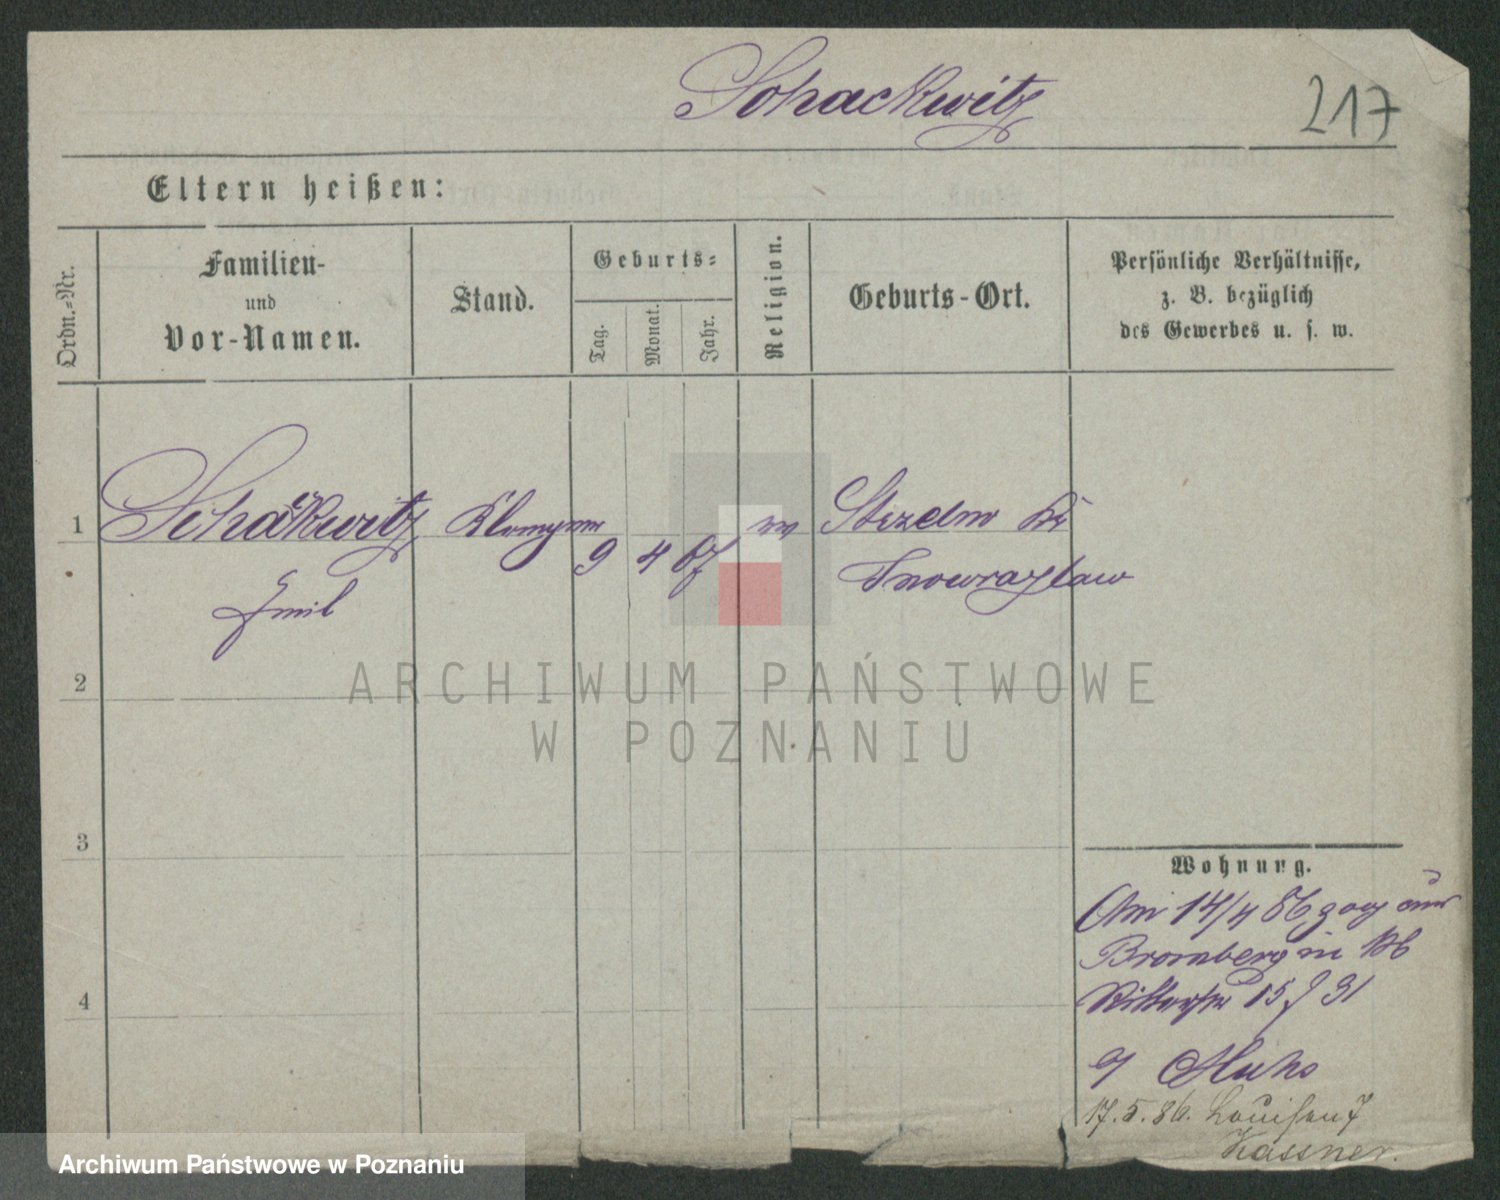 Schackwitz
217
Eltern heißen:
Ordn.-Nr.
Familien-
und
Vor-Namen.
Stand.
Geburts-
Tag.
Monat.
Jahr.
Religion.
Geburts-Ort.
Persönliche Verhältnisse,
z. B. bezüglich
des Gewerbes u. s. w.
1
Schackwitz
Emil
9 4 67
Inowrazlaw
2
3
4
Wohnung.
Am 14/4 86 zog aus
Bromberg in
Ritterstr 15
17.5.86. Louisen 7
Kassner.
ARCHIWUM PAŃSTWOWE
W POZNANIU
Archiwum Państwowe w Poznaniu